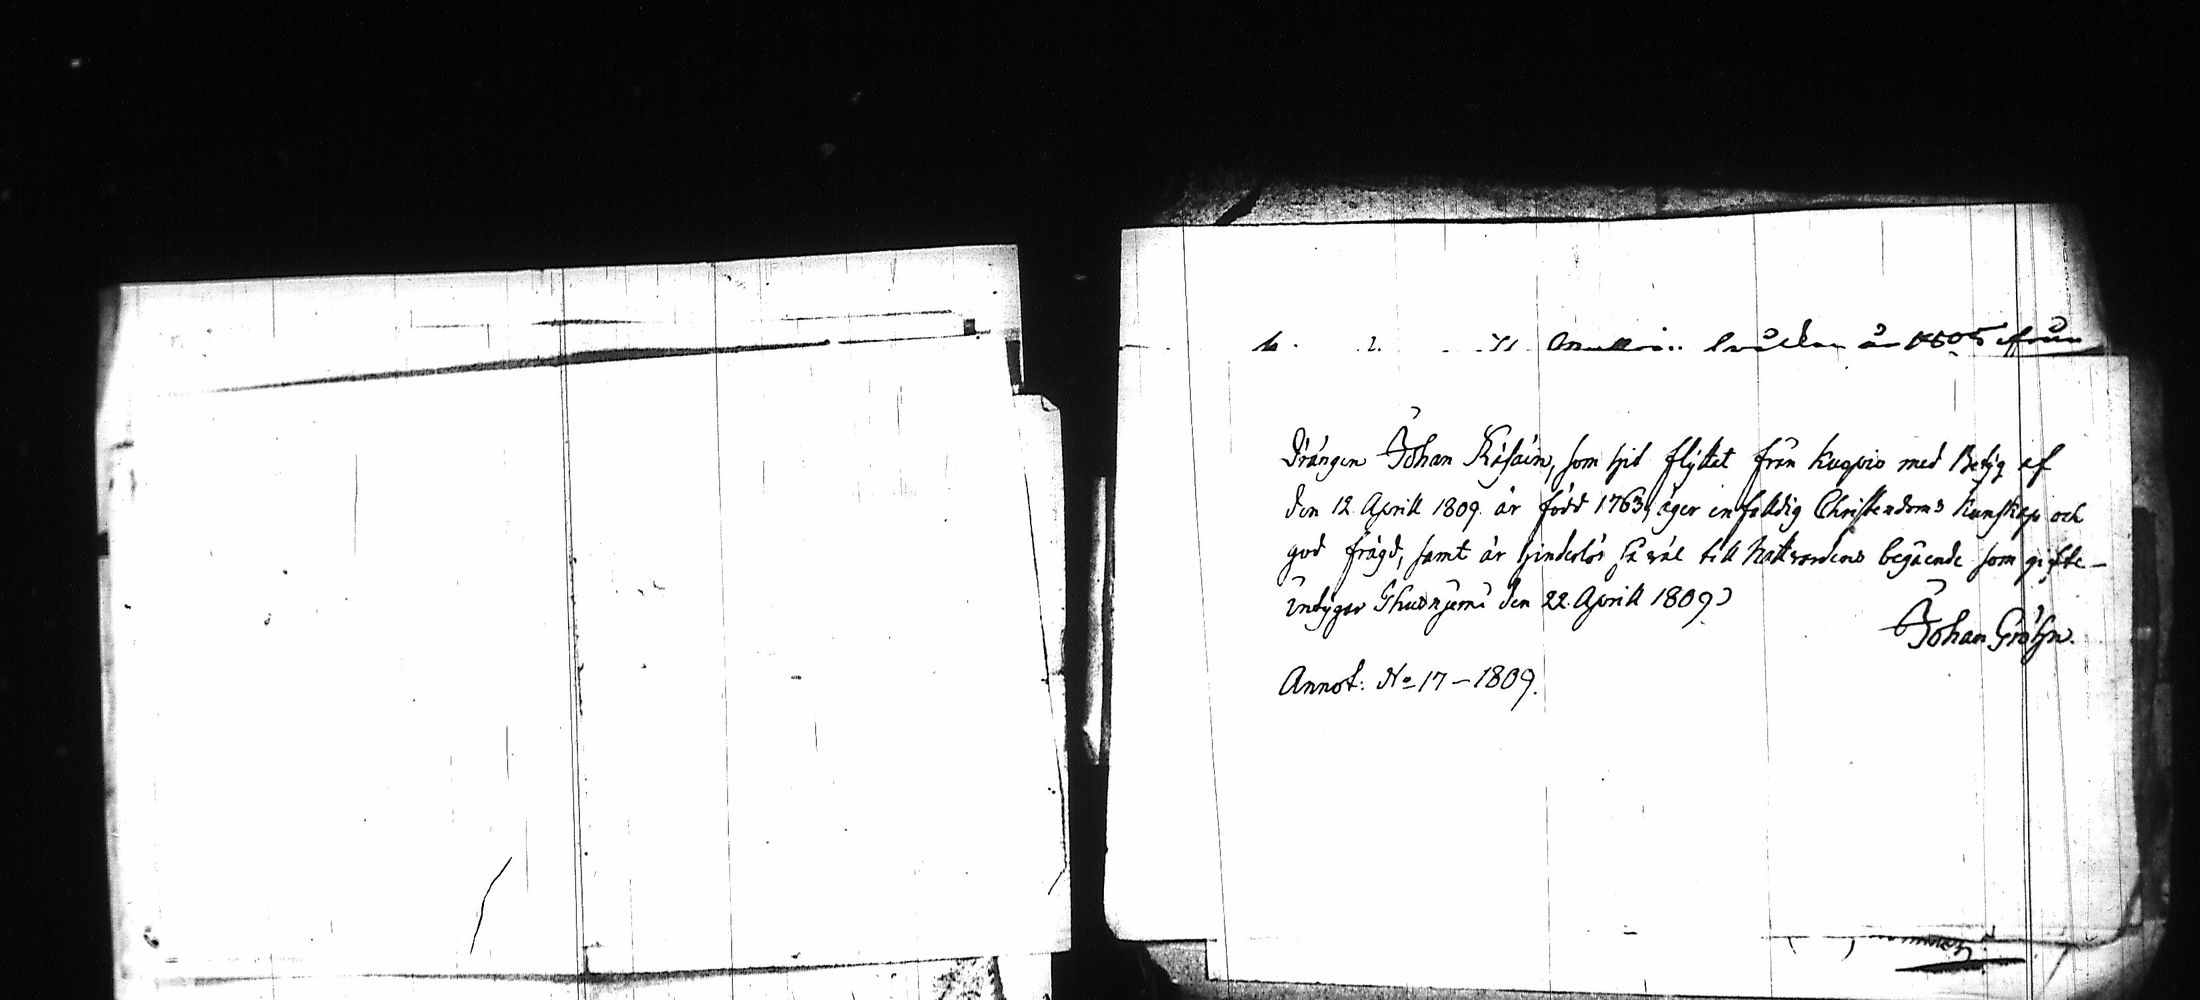 år 1805 ifrån
Drängen Johan Räsäin, som hit flyttat från Kuopio med Betyg af
den 12. Aprill 1809. är född 1763, äger enfalldig Christendoms kunskap och
god frägd, samt är hinderlös så väl till Nattvardens begående som gifte-
intygar Idensalmi den 22. Aprill 1809.
Johan Gröhn.
Annot: No 17 - 1809.